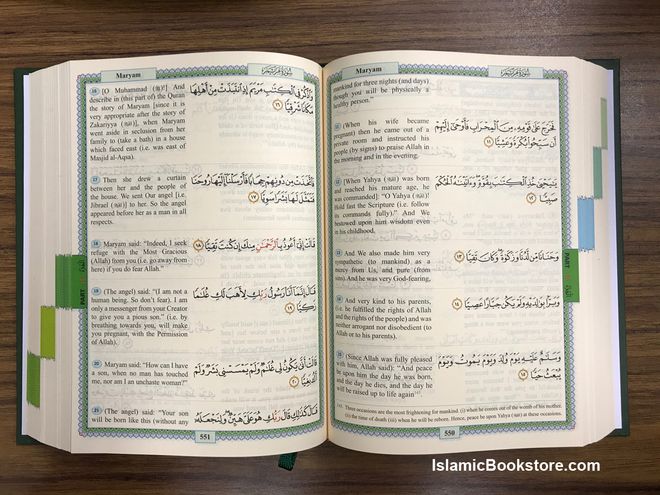 Maryam
سُورَةُ مَرْيَمَ
mankind for three nights (and days)
though you will be physically a
healthy person."
(When his wife became
pregnant) then he came out of a
private room and instructed his
people (by signs) to praise Allah in
the morning and in the evening.
فَخَرَجَ عَلَىٰ قَوْمِهِ مِنَ الْمِحْرَابِ فَأَوْحَىٰ إِلَيْهِمْ
أَن سَبِّحُوا بُكْرَةً وَعَشِيًّا ١١
[When Yahya was born
and reached his mature age, he
was commanded]: "O Yahya
Hold fast the Scripture (i.e. follow
its commands fully)." And We
bestowed upon him wisdom even
in his childhood,
يَا يَحْيَىٰ خُذِ الْكِتَابَ بِقُوَّةٍ وَآتَيْنَاهُ الْحُكْمَ
صَبِيًّا ١٢
And We also made him very
sympathetic (to mankind) as a
mercy from Us, and pure (from
sins). And he was very God-fearing,
وَحَنَانًا مِّن لَّدُنَّا وَزَكَاةً وَكَانَ تَقِيًّا ١٣
And very kind to his parents,
(i.e. he fulfilled the rights of Allah
and the rights of the people) and was
neither arrogant nor disobedient (to
Allah or to his parents).
وَبَرًّا بِوَالِدَيْهِ وَلَمْ يَكُن جَبَّارًا عَصِيًّا ١٤
(Since Allah was fully pleased
with him, Allah said): "And peace
be upon him the day he was born,
and the day he dies, and the day he
will be raised up to life again".
وَسَلَامٌ عَلَيْهِ يَوْمَ وُلِدَ وَيَوْمَ يَمُوتُ وَيَوْمَ
يُبْعَثُ حَيًّا ١٥
Three occasions are the most frightening for mankind. (i) when he comes out of the womb of his mother.
(ii) the time of death (iii) when he will be reborn. Hence, peace be upon Yahya at these occasions.
550
PART
Maryam
سُورَةُ مَرْيَمَ
16 [O Muhammad And
describe in (this part of) the Quran
the story of Maryam [since it is
very appropriate after the story of
Zakariyya when Maryam
went aside in seclusion from her
family (to take a bath) in a house
which faced east (i.e. was east of
Masjid al-Aqsa).
وَاذْكُرْ فِي الْكِتَابِ مَرْيَمَ إِذِ انتَبَذَتْ مِنْ أَهْلِهَا
مَكَانًا شَرْقِيًّا ١٦
17 Then she drew a curtain
between her and the people of
the house. We sent Our angel [i.e.
Jibrael to her. So the angel
appeared before her as a man in all
respects.
فَاتَّخَذَتْ مِن دُونِهِمْ حِجَابًا فَأَرْسَلْنَا إِلَيْهَا رُوحَنَا
فَتَمَثَّلَ لَهَا بَشَرًا سَوِيًّا ١٧
18 Maryam said: "Indeed, I seek
refuge with the Most Gracious
(Allah) from you (i.e. go away from
here) if you do fear Allah."
قَالَتْ إِنِّي أَعُوذُ بِالرَّحْمَٰنِ مِنكَ إِن كُنتَ تَقِيًّا ١٨
19 (The angel) said: "(I am not a
human being. So don't fear). I am
only a messenger from your Creator
to give you a pious son." (i.e. by
breathing towards you, will make
you pregnant, with the Permission
of Allah).
قَالَ إِنَّمَا أَنَا رَسُولُ رَبِّكِ لِأَهَبَ لَكِ غُلَامًا
زَكِيًّا ١٩
20 Maryam said: "How can I have
a son, when no man has touched
me, nor am I an unchaste woman?"
قَالَتْ أَنَّىٰ يَكُونُ لِي غُلَامٌ وَلَمْ يَمْسَسْنِي بَشَرٌ وَلَمْ
أَكُ بَغِيًّا ٢٠
21 (The angel) said: "Your son
will be born like this (without any
قَالَ كَذَٰلِكِ قَالَ رَبُّكِ هُوَ عَلَيَّ هَيِّنٌ وَلِنَجْعَلَهُ
551
PART
IslamicBookstore.com